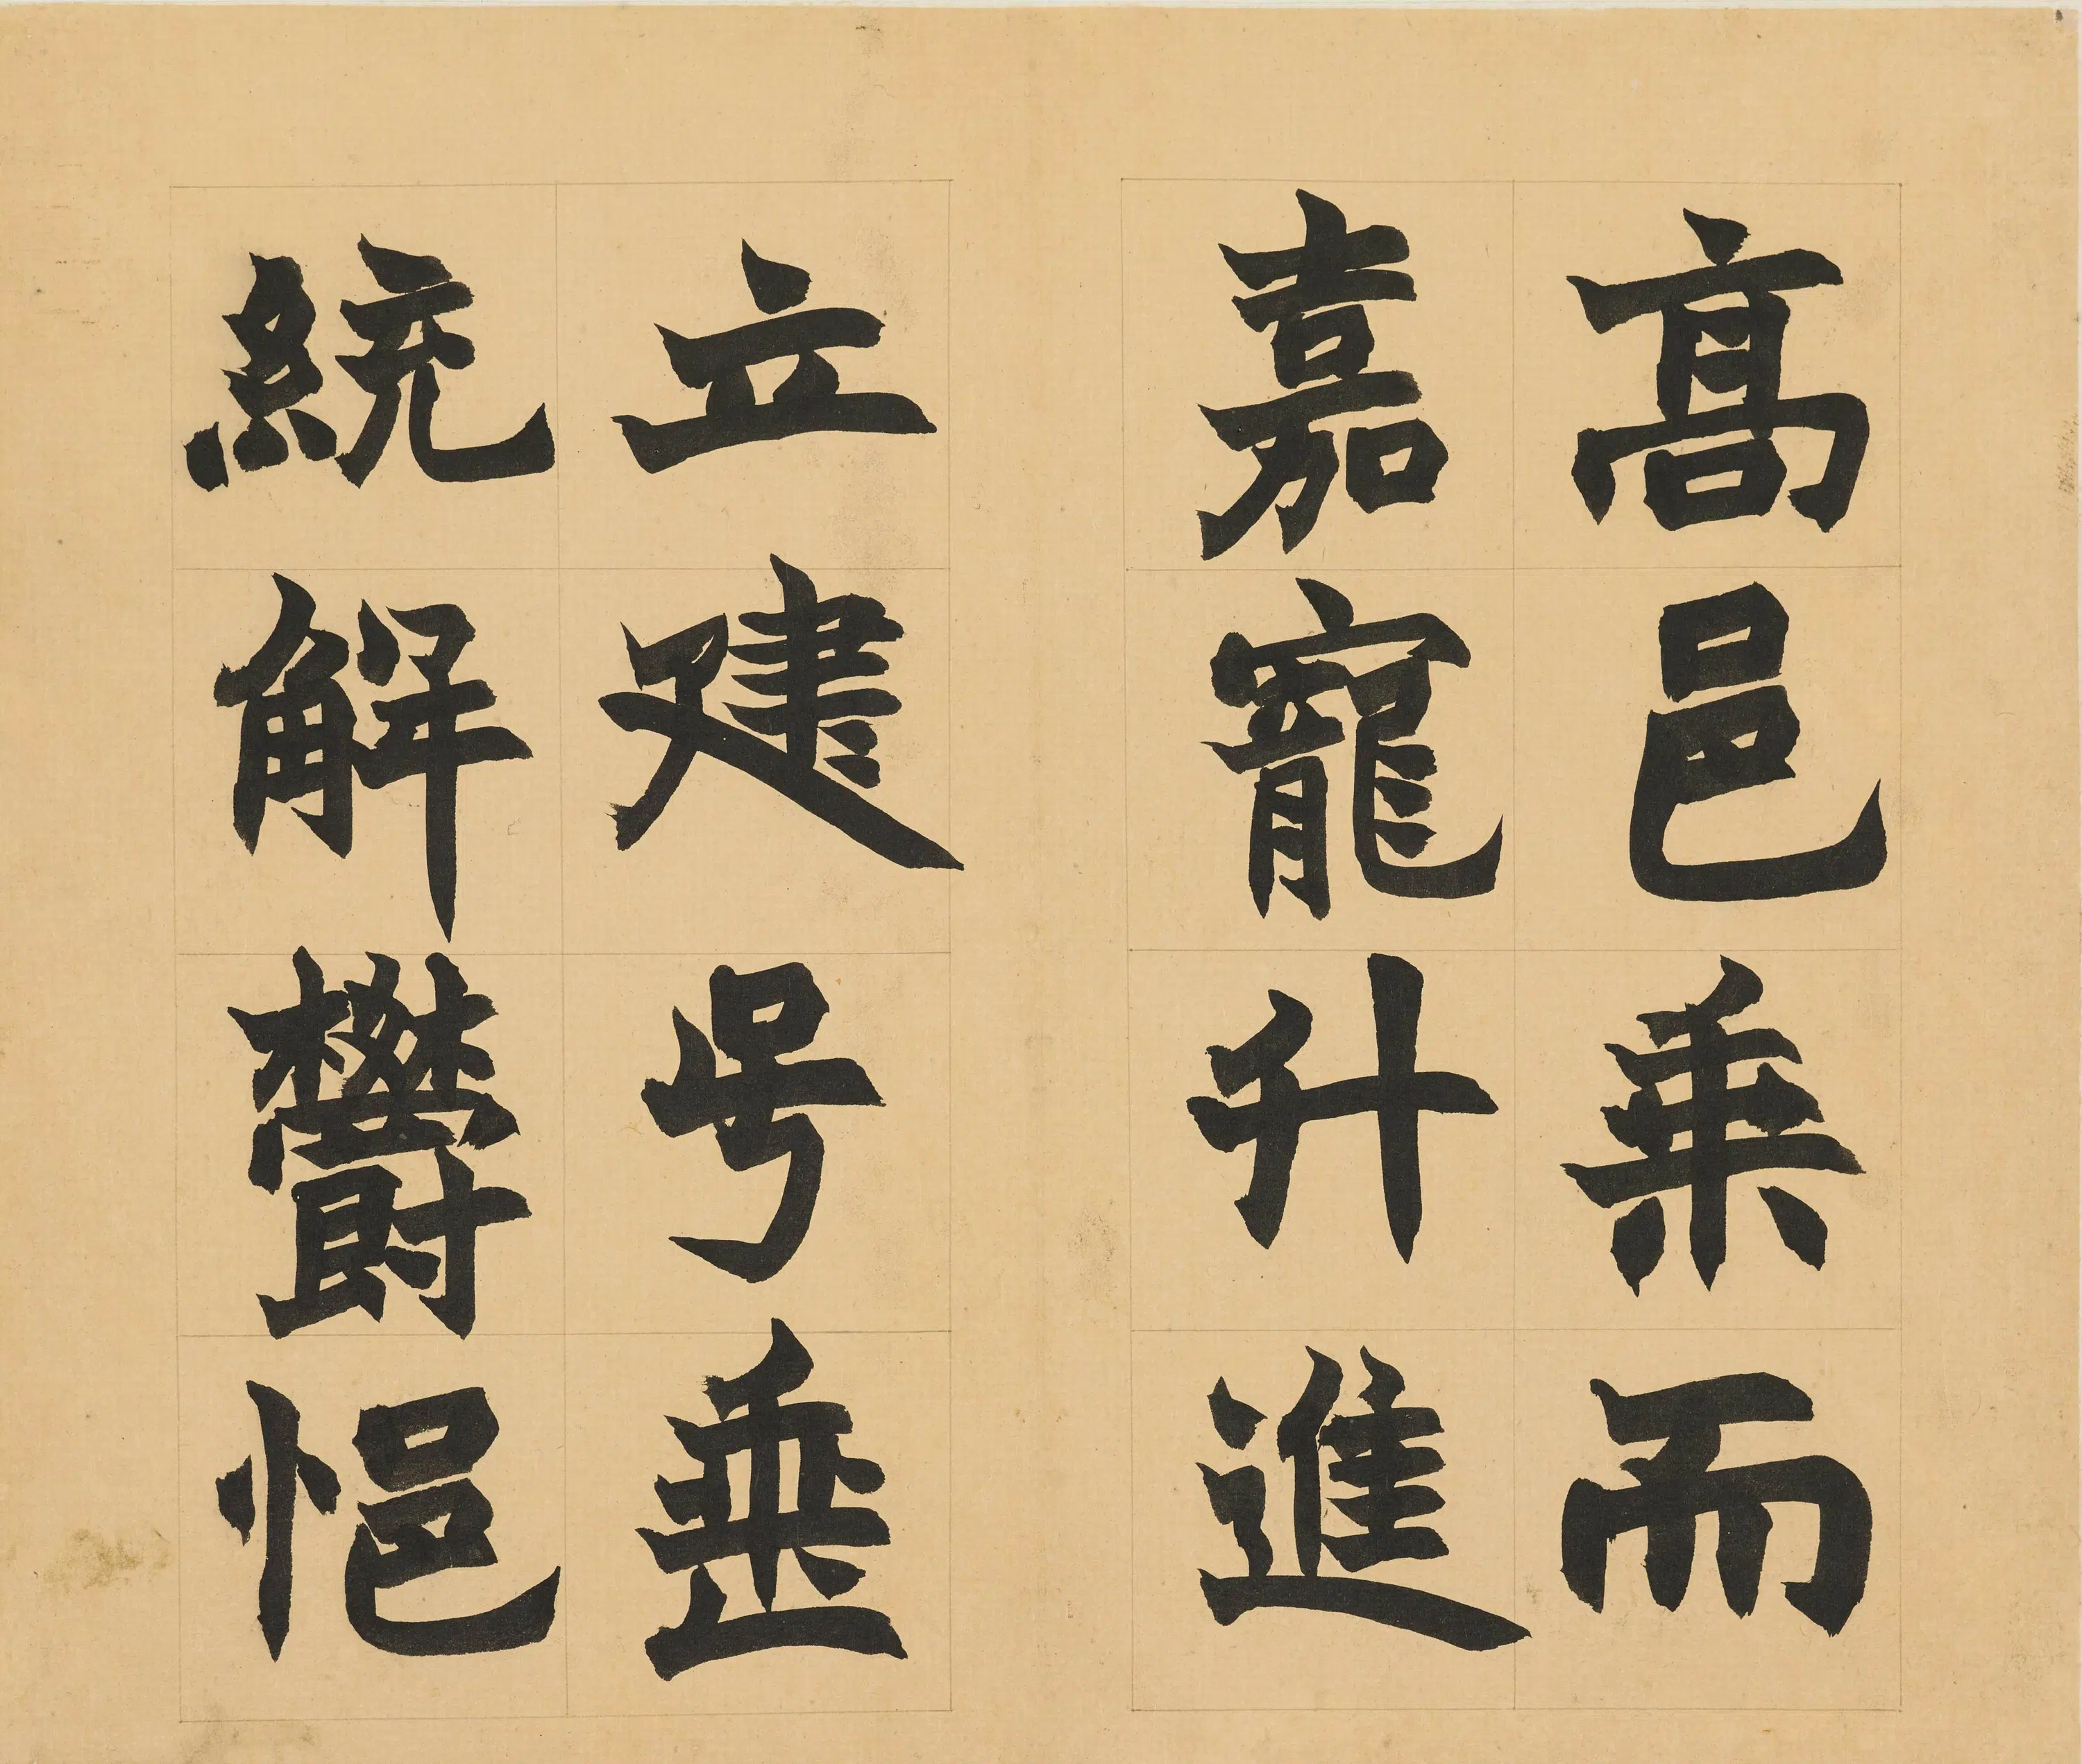 髙邑乗而
嘉寵升進
立建号垂
統解欝悒